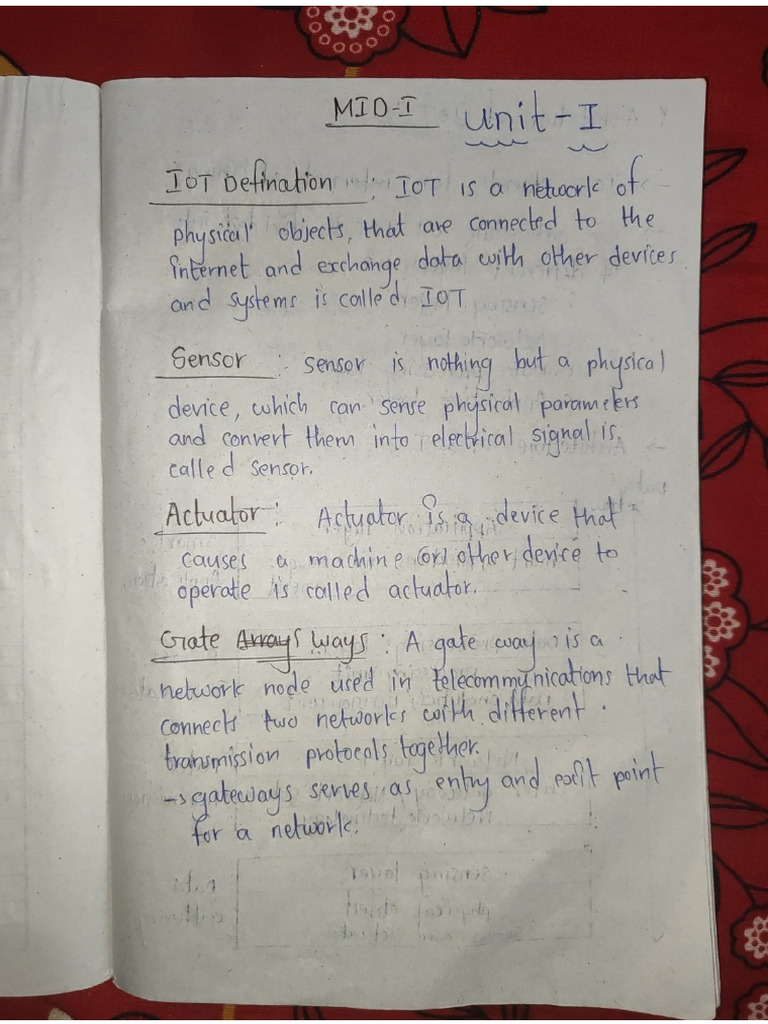 MID-I unit-I
IOT Defination : IOT is a network of
physical objects, that are connected to the
internet and exchange data with other devices
and systems is called IOT
Sensor : sensor is nothing but a physical
device, which can sense physical parameters
and convert them into electrical signal is
called sensor.
Actuator : Actuator is a device that
causes a machine (or) other device to
operate is called actuator.
Gate Arrays Ways : A gate way is a
network node used in telecommunications that
connects two networks with different
transmission protocols together.
→ gateways serves as entry and exit point
for a network.